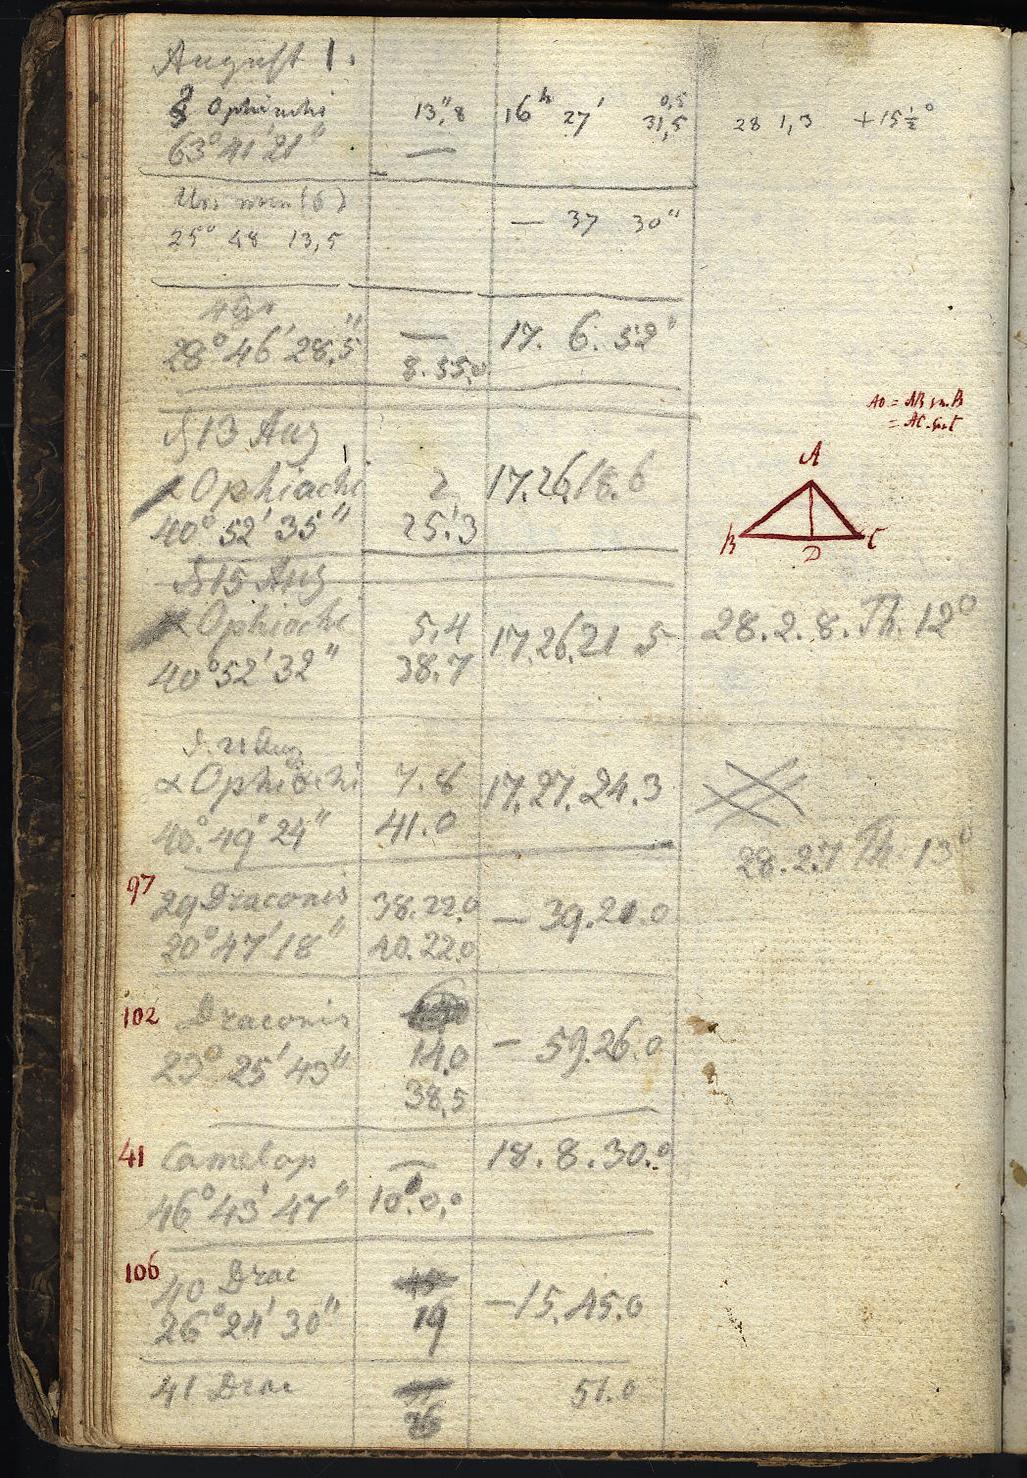 August 1.
Ophiuchi 13",8 16h 27' 31,5 28 1,3 +15½°
0,5
63° 41' 21" —
Urs min (6) — 37 30"
25° 48 13,5
28° 46' 28,5" — 17. 6. 52"
8.55,0
13 Aug
α Ophiuchi 2, 17.26.18.6
40° 52' 35" 25.'3
AD = AB sin. B
= AC.
A
B D C
15 Aug
α Ophiuchi 5,4 17.26.21 5 28.2.8. Th. 12°
40° 52' 32" 38.7
21 Aug
α Ophiuchi 7.8 17.27.24.3
40°. 49' 24" 41.0
28.2.7 Th. 13°
97 29 Draconis 38.22.0 — 39.20.0
20° 47' 18" 40.22.0
102 Draconis
23° 25' 43" 14.0 — 59.26.0
38,5
41 Camelop — 18. 8. 30.0
46° 43' 47" 10".0,0
106 40 Drac
26° 24' 30" 19 — 15.45.0
41 Drac 51.0
36